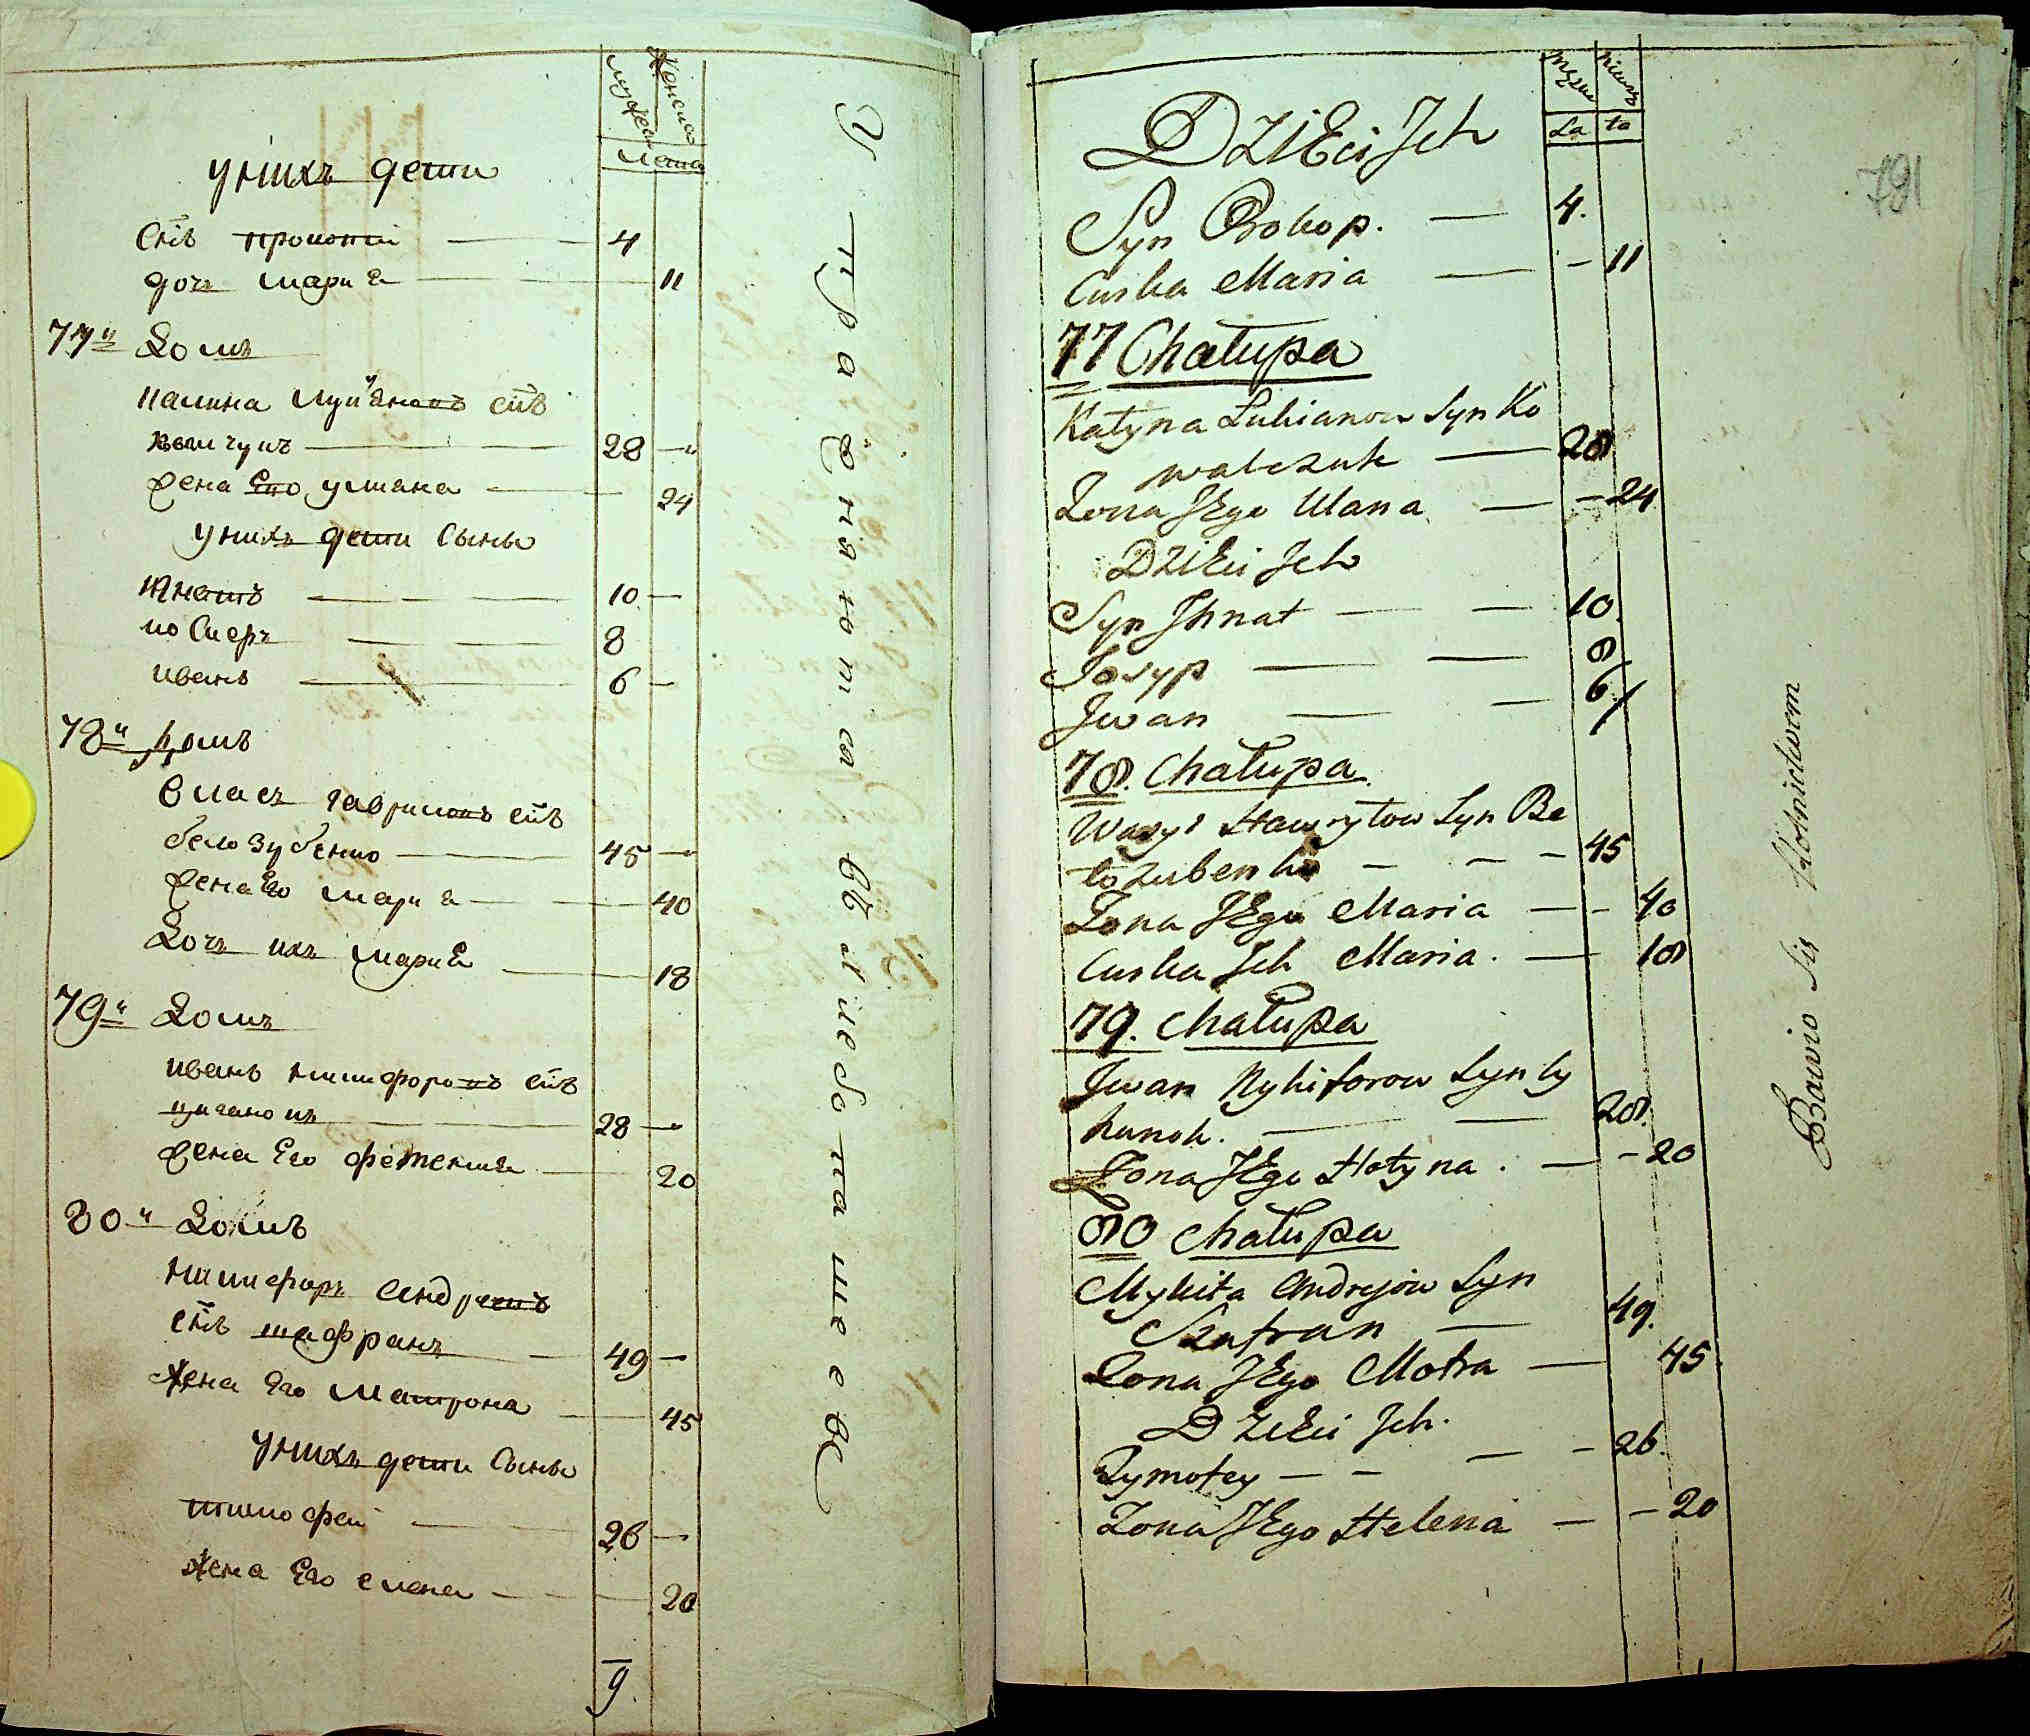 мужеск женска
лета
у нихъ дети
Снъ Прокопий — 4
дочь Мария — 11
77й Домъ
Калина Лукьяновъ снъ
Ковалчукъ — 28 —
жена Его Уляна — 24
у нихъ дети Сыны
Игнатъ — 10 —
Иосиеръ — 8
Иванъ — 6 —
78й Домъ
Власъ Гавриловъ снъ
белозубенко — 45 —
жена Его Мария — 40
Дочь ихъ Мария — 18
79й Домъ
Иванъ Никифоровъ снъ
Цигановъ — 28 —
жена Его Фетения — 20
80й Домъ
Никифоръ Андреевъ
снъ Шафранъ — 49 —
Жена Его Матрона — 45
у нихъ дети Сыны
Тимофей — 26 —
жена Его елена — 20
9.
Упражняются в хлебопашесве
Męzka
La ta
791
DZIEci Ich
Syn Prokop. — 4.
Curka Maria — - 11
77 Chałupa
Kałyna Lukianow Syn Ko
walczuk — 28
Zona JEgo Ulana — - 24
DZIEci Ich
Syn Ihnat — — 10.
Josyp — — 8
Jwan — — 6
78. Chałupa
Wasyl Hawryłow Syn Be
łozubenko — — - 45
Zona JEgo Maria — - 40
Curka Ich Maria. — 18
79. Chałupa
Jwan Nykiforow Syn Cy
hanok. — — 28.
Zona JEgo Hotyna. — - 20
80 Chałupa
Mykita Andrejow Syn
Szafran — 49.
Zona JEgo Motra — 45
DZIEci Ich.
Tymofey — - — - 26.
Zona JEgo Helena — - 20
Bawio Się Rolnictwem